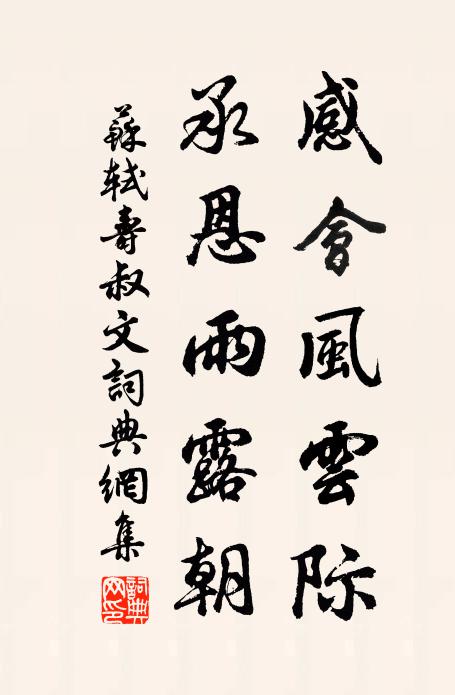 感會風雲際
承恩雨露朝
蘇軾壽叔文詞典網集
詞典網印